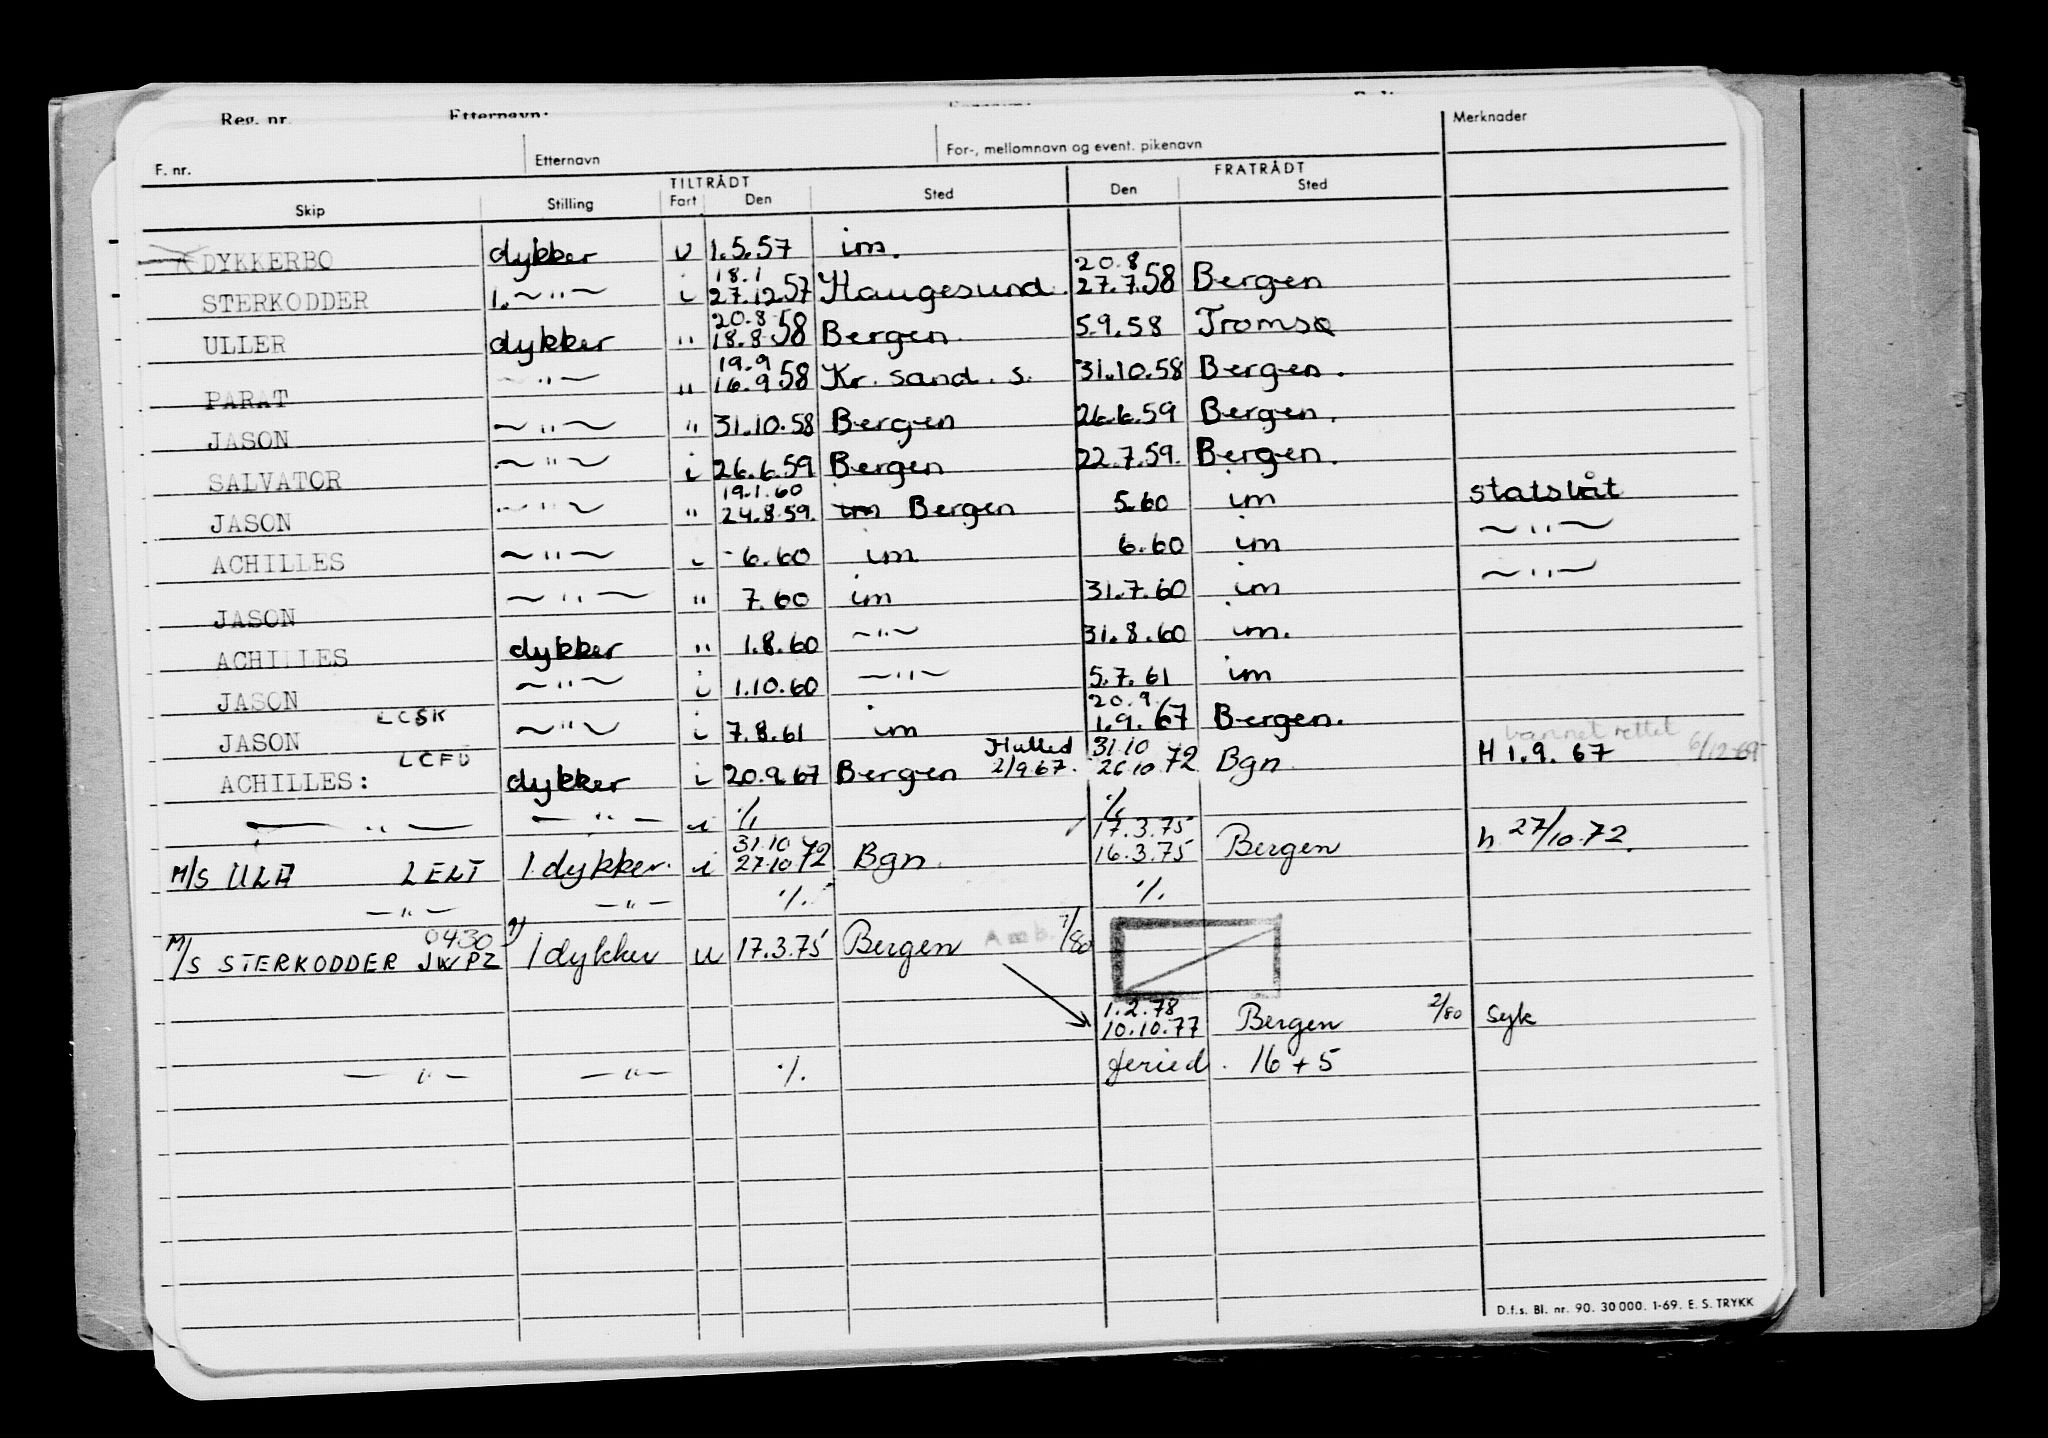 Reg. nr. Etternavn:
F. nr. Etternavn For-, mellomnavn og event. pikenavn Merknader
TILTRÅDT FRATRÅDT
Skip Stilling Fart Den Sted Den Sted
DYKKERBO dykker u 1.5.57 im.
18.1 20.8
STERKODDER 1. ~"~ i 27.12.57 Haugesund. 27.7.58 Bergen
20.8
ULLER dykker " 18.8.58 Bergen. 5.9.58 Tromsø
19.9
PARAT ~"~ " 16.9.58 Kr. sand. s. 31.10.58 Bergen.
JASON ~"~ " 31.10.58 Bergen 26.6.59 Bergen.
SALVATOR ~"~ i 26.6.59 Bergen 22.7.59. Bergen.
19.1.60
JASON ~"~ " 24.8.59. im Bergen 5.60 im statsbåt
ACHILLES ~"~ i -6.60 im 6.60 im ~"~
JASON ~"~ " 7.60 im 31.7.60 im ~"~
ACHILLES dykker " 1.8.60 ~"~ 31.8.60 im.
JASON ~"~ i 1.10.60 ~"~ 5.7.61 im
LCSK 20.9.
JASON ~"~ i 7.8.61 im 1.9.67 Bergen.
LCFD Hulled 31.10
ACHILLES: dykker i 20.9.67 Bergen 2/9 67. 26.10.72 Bgn. H 1.9.67 6/12-69
—"— —"— i ·/· ·/·
31.10 17.3.75
M/S ULA LELT 1. dykker. i 27.10.72 Bgn. 16.3.75 Bergen h. 27/10.72.
—"— —"— ·/· ·/·
0430
M/S STERKODDER JWPZ 1 dykker u 17.3.75 Bergen Amb. 7/80
1.2.78
10.10.77 Bergen 2/80 Syk
—"— —"— ·/· feried. 16+5
D.f.s. Bl. nr. 90. 30 000. 1-69. E. S. TRYKK